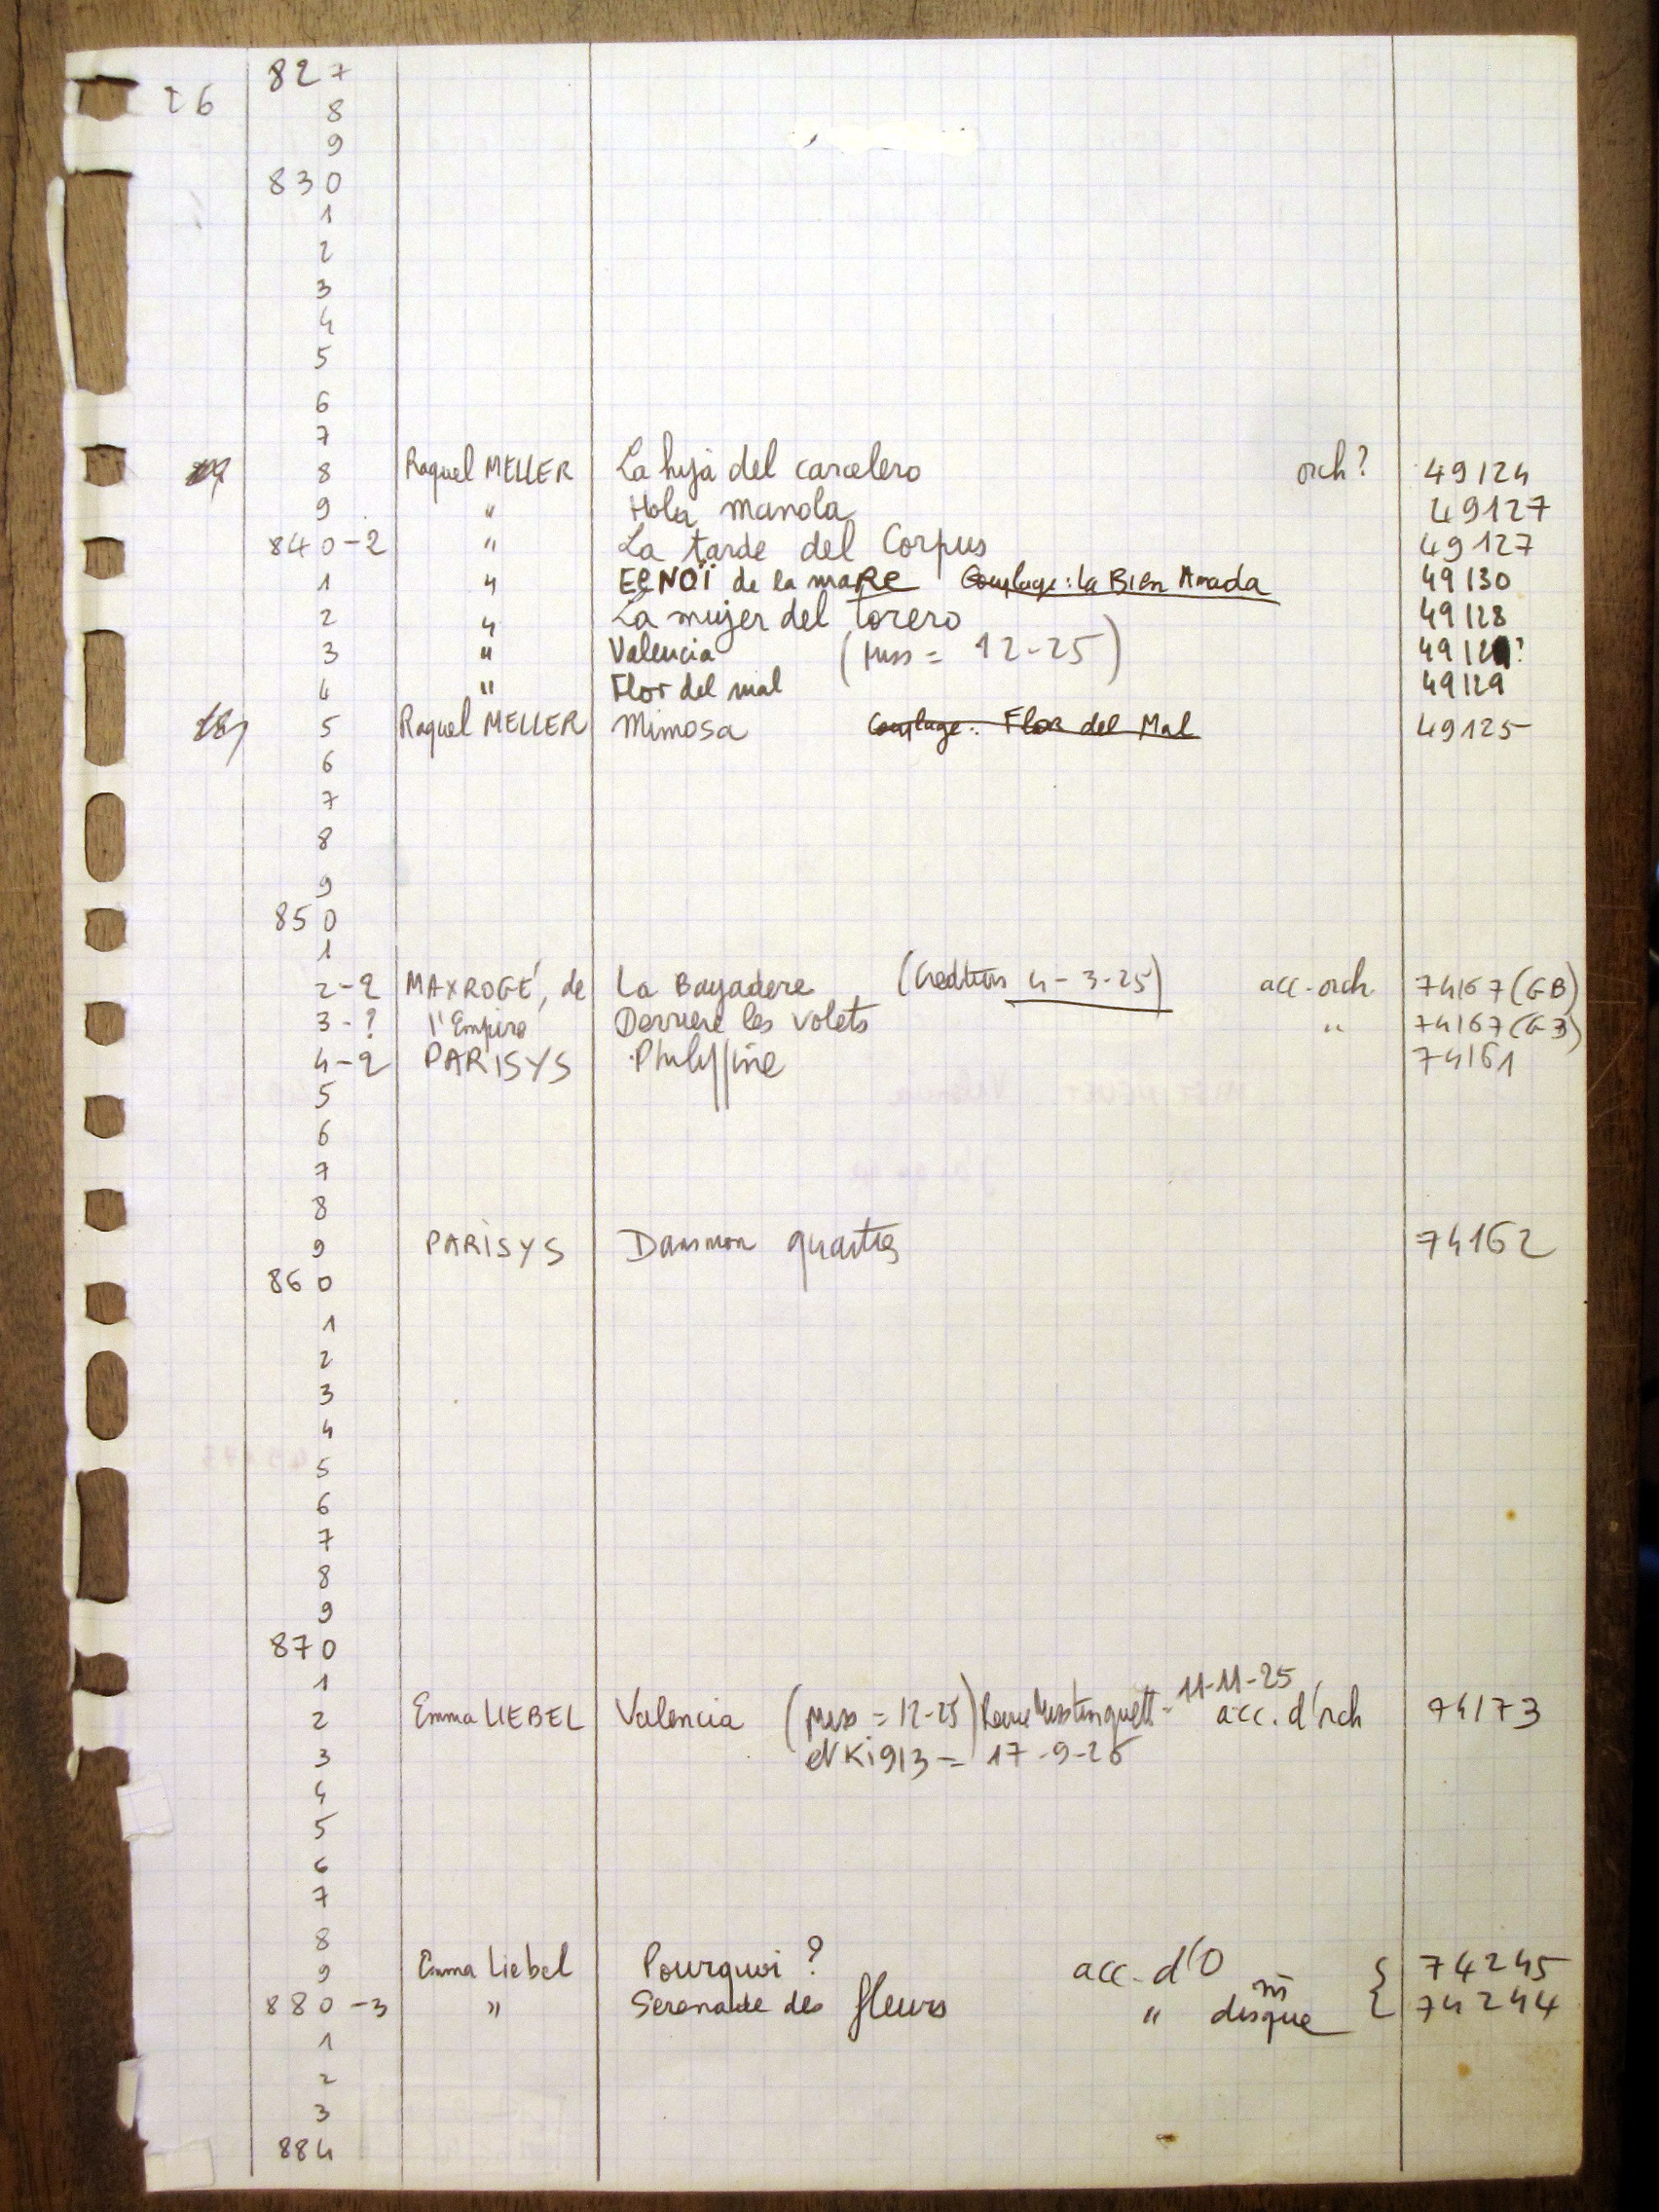 827
26 8
9
830
1
2
3
4
5
6
7
8 Raquel MELLER La hija del carcelero orch? 49124
9 " Hola manola 49127
840-2 " La tarde del Corpus 49127
1 " El NOÏ de la maRe Couplage: la Bien Amada 49130
2 " La mujer del torero 49128
3 " Valencia ( = 12-25) 4912 ?
4 " Flor del mal 49129
5 Raquel MELLER Mimosa Couplage: Flor del Mal 49125
6
7
8
9
850
1
2-2 MAXROGÉ, de La Bayadere (Creation 4-3-25) acc. orch 74167 (GB)
3-? l'Empire Derriere les volets " 74167 (GB)
4-2 PARISYS Philippine 74161
5
6
7
8
9 PARISYS Dans mon quartier 74162
860
1
2
3
4
5
6
7
8
9
870
1
2 Emma LIEBEL Valencia ( = 12-25) Revue Mistinguett - 11-11-25 acc. d'orch 74173
3 913 = 17-9-26
4
5
6
7
8
9 Emma Liebel Pourquoi? acc. d'O 74245
880-3 " Serenade des fleurs " disque 74244
1
2
3
884